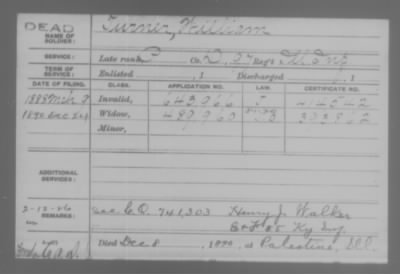 DEAD
NAME OF SOLDIER: Turner, William
SERVICE: Late rank, Co. D, 27 Reg't
TERM OF SERVICE: Enlisted , 1 Discharged , 1
DATE OF FILING. CLASS. APPLICATION NO. LAW. CERTIFICATE NO.
1888 Mch Invalid, 643,966 414542
1890 Dec 24 Widow, 489,960 303862
Minor,
ADDITIONAL SERVICES:
2-12-96
REMARKS: C.O. 741,303 Henry J. Walker
85 Ky Inf.
Died Dec 8, 1890, at Palestine, Ill.